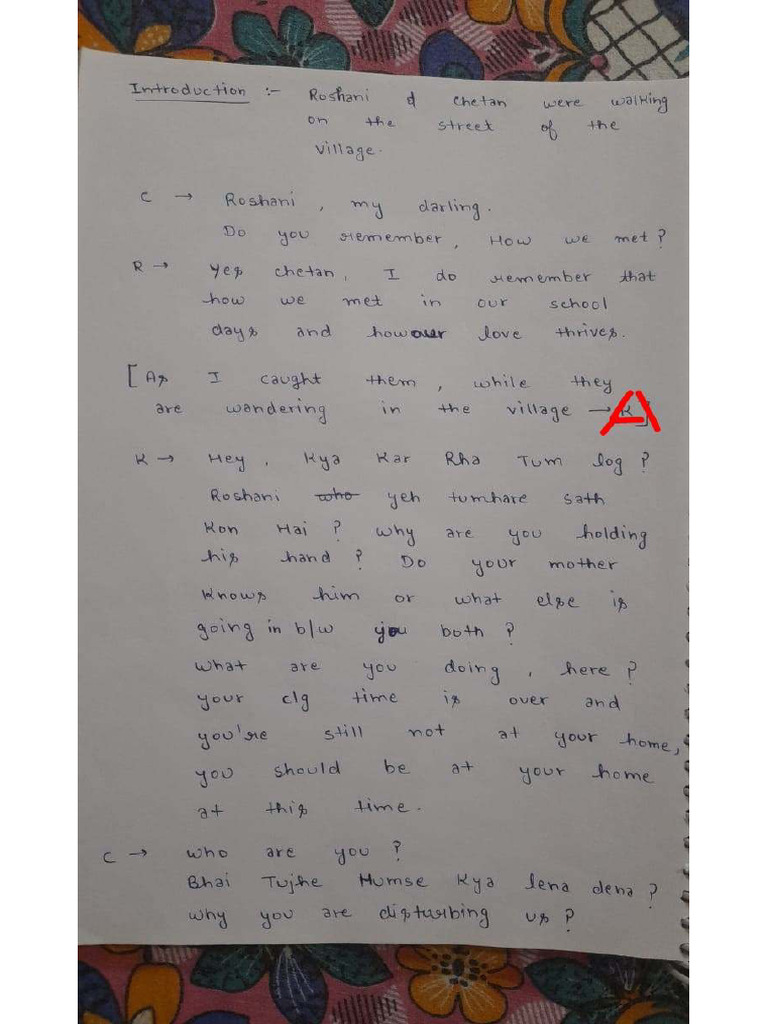 Introduction :- Roshani & Chetan were walking
on the street of the
village.
C → Roshani, my darling.
Do you remember, How we met?
R → Yes Chetan, I do remember that
how we met in our school
days and how our love thrives.
[As I caught them, while they
are wandering in the village → K]
A
K → Hey, Kya Kar Rha Tum log?
Roshani who yeh tumhare sath
Kon Hai? Why are you holding
his hand? Do your mother
Knows him or what else is
going in b/w you both?
What are you doing, here?
your clg time is over and
you're still not at your home,
you should be at your home
at this time.
C → Who are you?
Bhai Tujhe Humse Kya lena dena?
Why you are disturbing us?